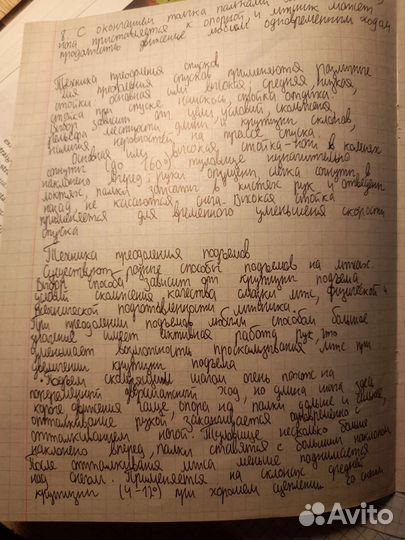 8. С окончания толчка палками
нога приставляется к опорной и лыжник может
продолжить движение любым одновременным ходом
Техника преодоления спусков
Для преодоления спусков применяются различные
стойки: основная или высокая; средняя, низкая,
стойка при спуске наискось, стойка отдыха
Выбор зависит от цели, условий скольжения
рельефа местности, длины и крутизны склонов,
наличия неровностей на трассе спуска.
Основная или высокая стойка - ноги в коленях
согнуты (до 160°) туловище незначительно
наклонено вперед, руки опущены, слегка согнуты в
локтях, палки зажаты в кистях рук и отведены
назад не касаются снега. Высокая стойка
применяется для временного уменьшения скорости
спуска
Техника преодоления подъемов
Существуют разные способы подъемов на лыжах.
Выбор способа зависит от крутизны подъема
условий скольжения качества смазки лыж, физической и
технической подготовленности лыжника.
При преодолении подъемов любым способом большое
значение имеет активная работа рук, это
уменьшает возможность проскальзывания лыж при
увеличении крутизны подъема
Подъем скользящим шагом очень похож на
попеременный двухшажный ход, но длина шага
короче движения чаще опора на палки дольше и сильнее,
отталкивание рукой заканчивается одновременно с
отталкиванием ногой. Туловище несколько больше
наклонено вперед, палки ставятся с большим наклоном
После отталкивания лыжа меньше поднимается
над снегом. Применяется на склонах средней
крутизны (4-12°) при хорошем сцеплении со снегом
Avito